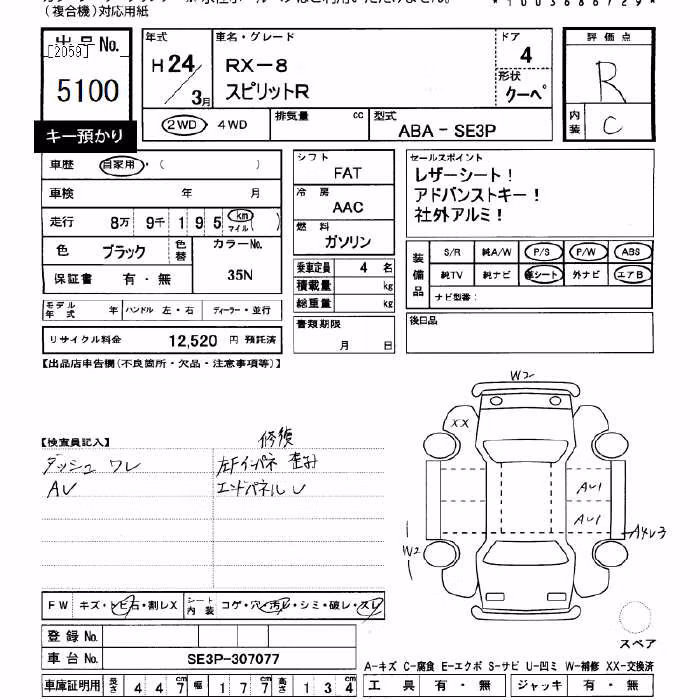 (複合機)対応用紙
*1003686729*
出品No.
[2059]
5100
キー預かり
年式
H24/3月
車名・グレード
RX-8
スピリットR
ドア
4
形状
クーペ
2WD・4WD
排気量 cc
型式
ABA-SE3P
評価点
R
内装
C
車歴 自家用・( )
車検 年 月
走行 8万 9千 195 km マイル( )
色 ブラック
色替
カラーNo.
35N
保証書 有・無
モデル年式 年
ハンドル 左・右
ディーラー・並行
リサイクル料金 12,520 円 預託済
シフト
FAT
冷房
AAC
燃料
ガソリン
乗車定員 4 名
積載量 kg
総重量 kg
書類期限
月 日
セールスポイント
レザーシート!
アドバンストキー!
社外アルミ!
装備品
S/R 純A/W P/S P/W ABS
純TV 純ナビ 革シート 外ナビ エアB
ナビ型番:
後日品
【出品店申告欄(不良箇所・欠品・注意事項等)】
【検査員記入】
修復
ダッシュ ワレ
左Fインパネ 歪み
AU
エンドパネル U
W2
XX
AU1
AU1
A4U3
W2
スペア
FW キズ・トビ石・割レX
シート内装 コゲ・穴・汚レ・シミ・破レ・スレ
登録No.
車台No. SE3P-307077
車庫証明用 長さ 447cm 幅 177cm 高さ 134cm
A-キズ C-腐食 E-エクボ S-サビ U-凹ミ W-補修 XX-交換済
工具 有・無 ジャッキ 有・無